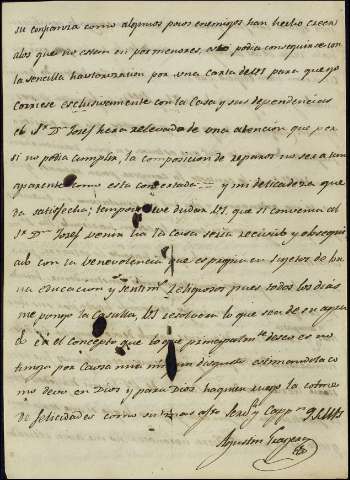 su confianza como algunos pocos enemigos han hecho creer
alos que no estan en pormenores, esto podia conseguirse con
la sencilla hautorizacion por una carta de V.S. para que yo
corriese esclusivemente con la Casa y sus dependencias
el S.r D.n Josef hera relevado de una atencion que por
si no podia cumplir, la composicion de reparos no sera tan
aparente como esta concertada = y mi delicadeza que
da satisfecha; tampoco deve dudar V.S. que si conviene al
S.r D.n Josef venir ha la Casa seria recivido y obsequi
ado con la benevolencia que es propia en sujetos de bue
na educacion y sentim.tos Religiosos pues todos los dias
me pongo la Casulla, V.S. resolvera lo que sea de su agra
do en el Concepto que lo que principalm.te deseo es no
tenga por Causa mia ningun disgusto estimandole co
mo devo en Dios y para Dios, haquien ruego le colme
de felicidades como su mas afto Serv.r y Capp.n Q.S.M.B.
Agustin